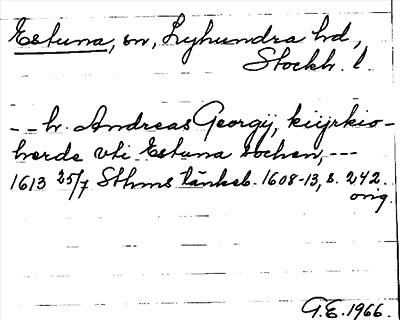 Estuna, sn, Lyhundra hd,
Stockh. l.
-- h. Andreas Georgij, kiyrkio-
herde vti Estuna sochen, ---
1613 25/7 Sthms tänkeb. 1608-13, s. 242.
orig.
G.E. 1966.